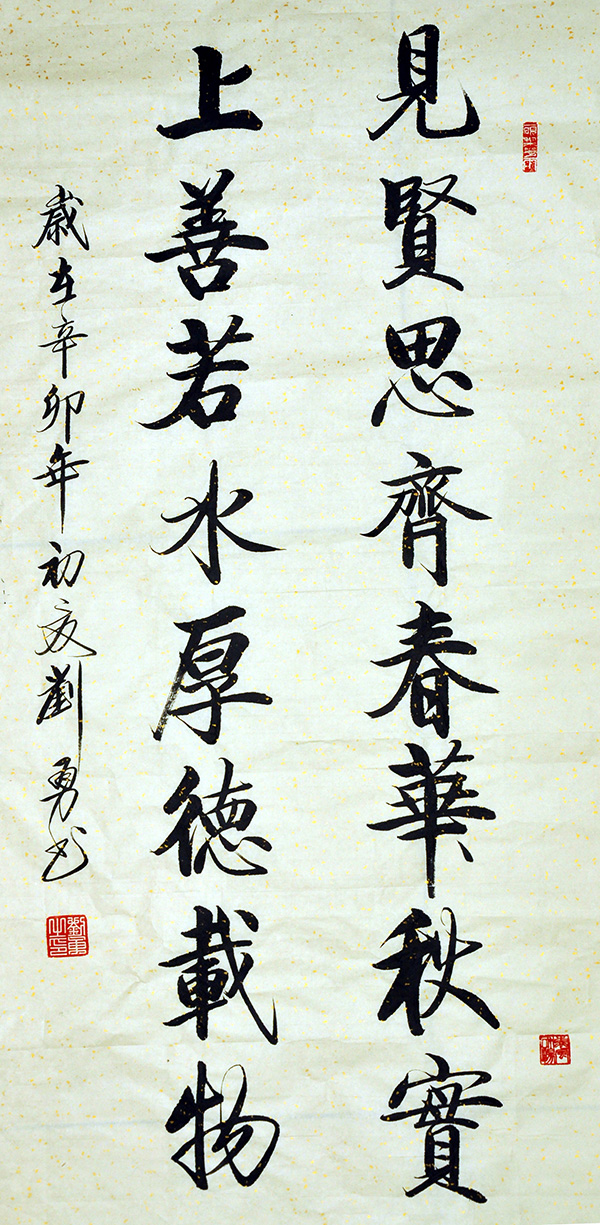 見賢思齊春華秋實
上善若水厚德載物
歲在辛卯年初夏劉勇書
劉勇之印